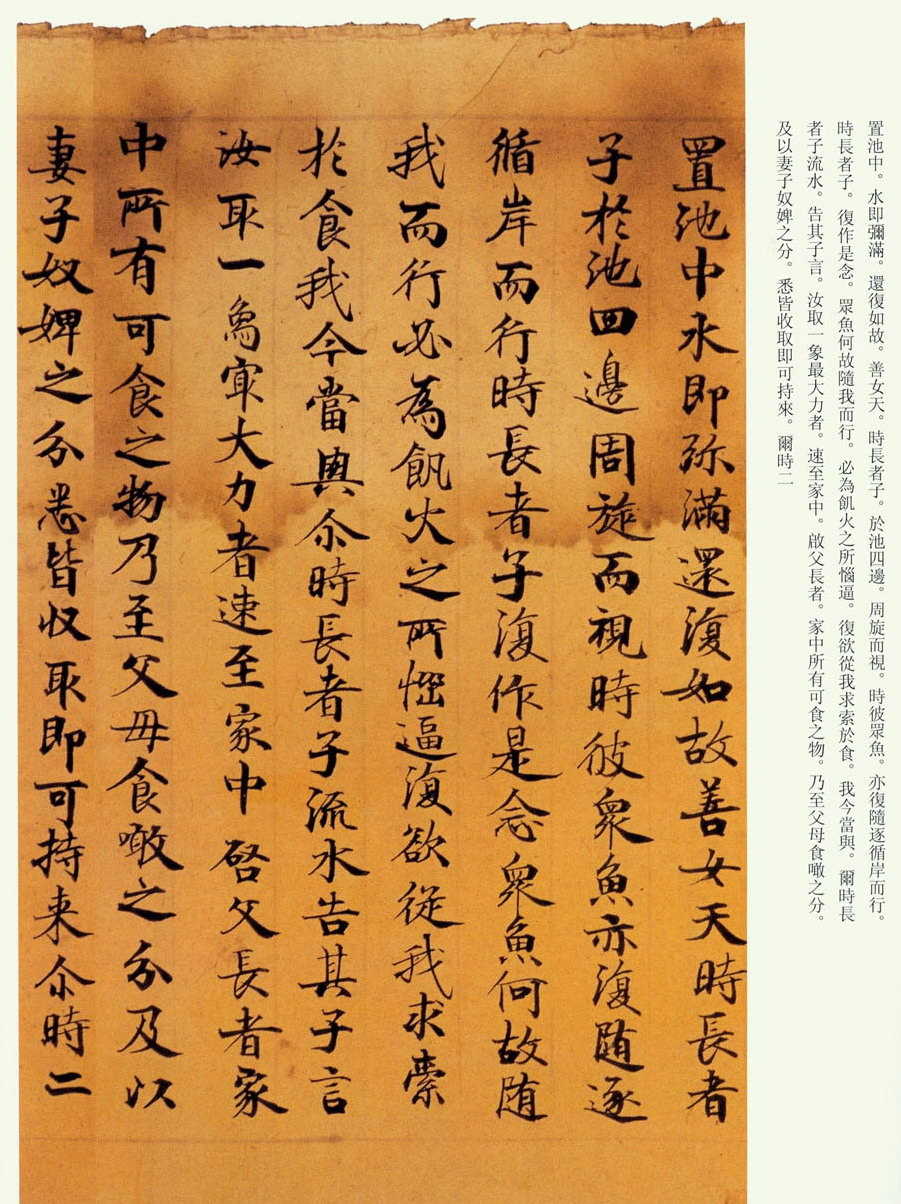 置池中。水即彌滿。還復如故。善女天。時長者子。於池四邊。周旋而視。時彼眾魚。亦復隨逐循岸而行。
時長者子。復作是念。眾魚何故隨我而行。必為飢火之所惱逼。復欲從我求索於食。我今當與。爾時長
者子流水。告其子言。汝取一象最大力者。速至家中。啟父長者。家中所有可食之物。乃至父母食噉之分。
及以妻子奴婢之分。悉皆收取即可持來。爾時二
置池中水即弥滿還復如故善女天時長者
子於池四邊周旋而視時彼眾魚亦復随逐
循岸而行時長者子復作是念眾魚何故随
我而行必為飢火之所惱逼復欲從我求索
於食我今當與尒時長者子流水告其子言
汝取一象冣大力者速至家中啓父長者家
中所有可食之物乃至父母食噉之分及以
妻子奴婢之分悉皆收取即可持来尒時二